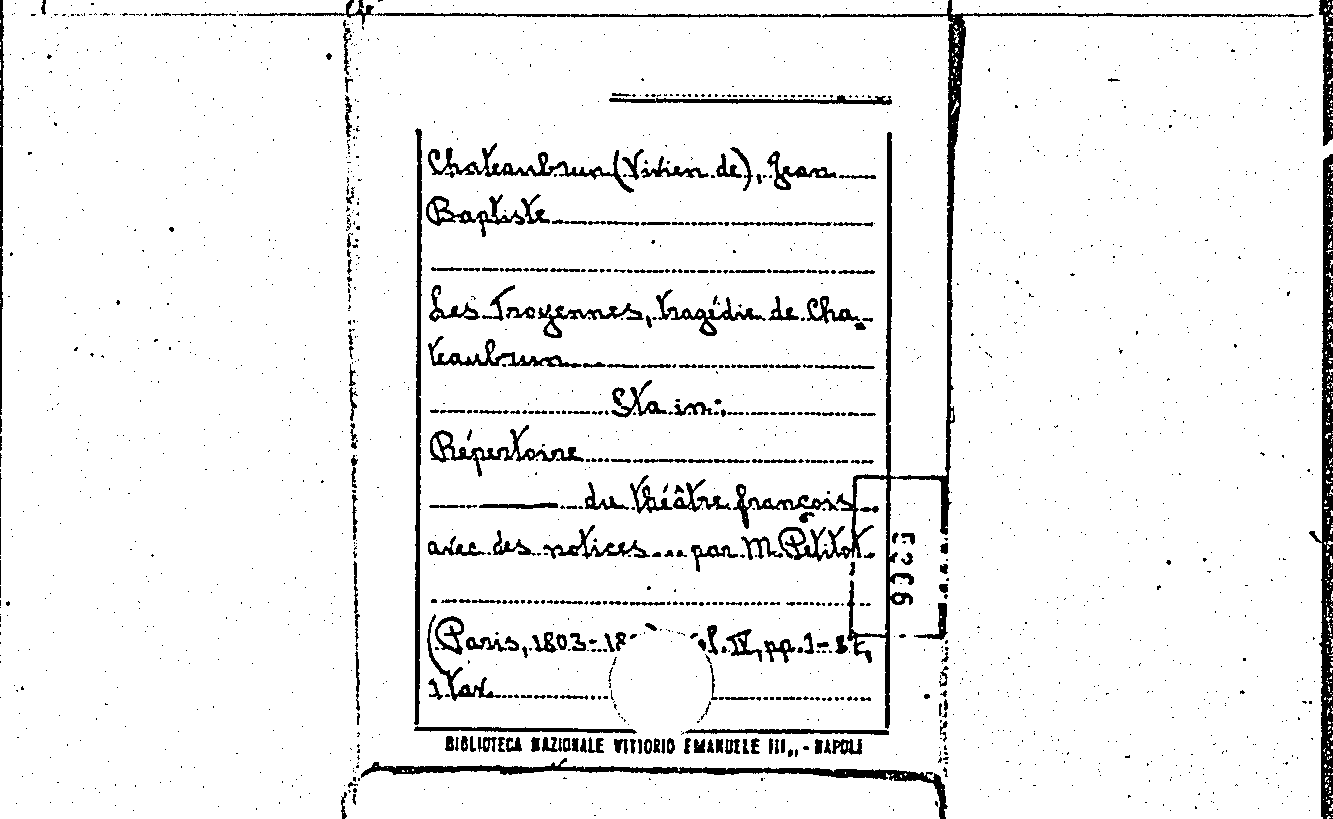 Chateaubrun (Vivien de), Jean
Baptiste
Les Troyennes, tragédie de Cha-
teaubrun
Sta in:
Répertoire
du théâtre françois
avec des notices... par M. Petitot.
(Paris, 1803-18 l. IV, pp. 1-
1 tav.
BIBLIOTECA NAZIONALE VITTORIO EMANUELE III,, - NAPOLI